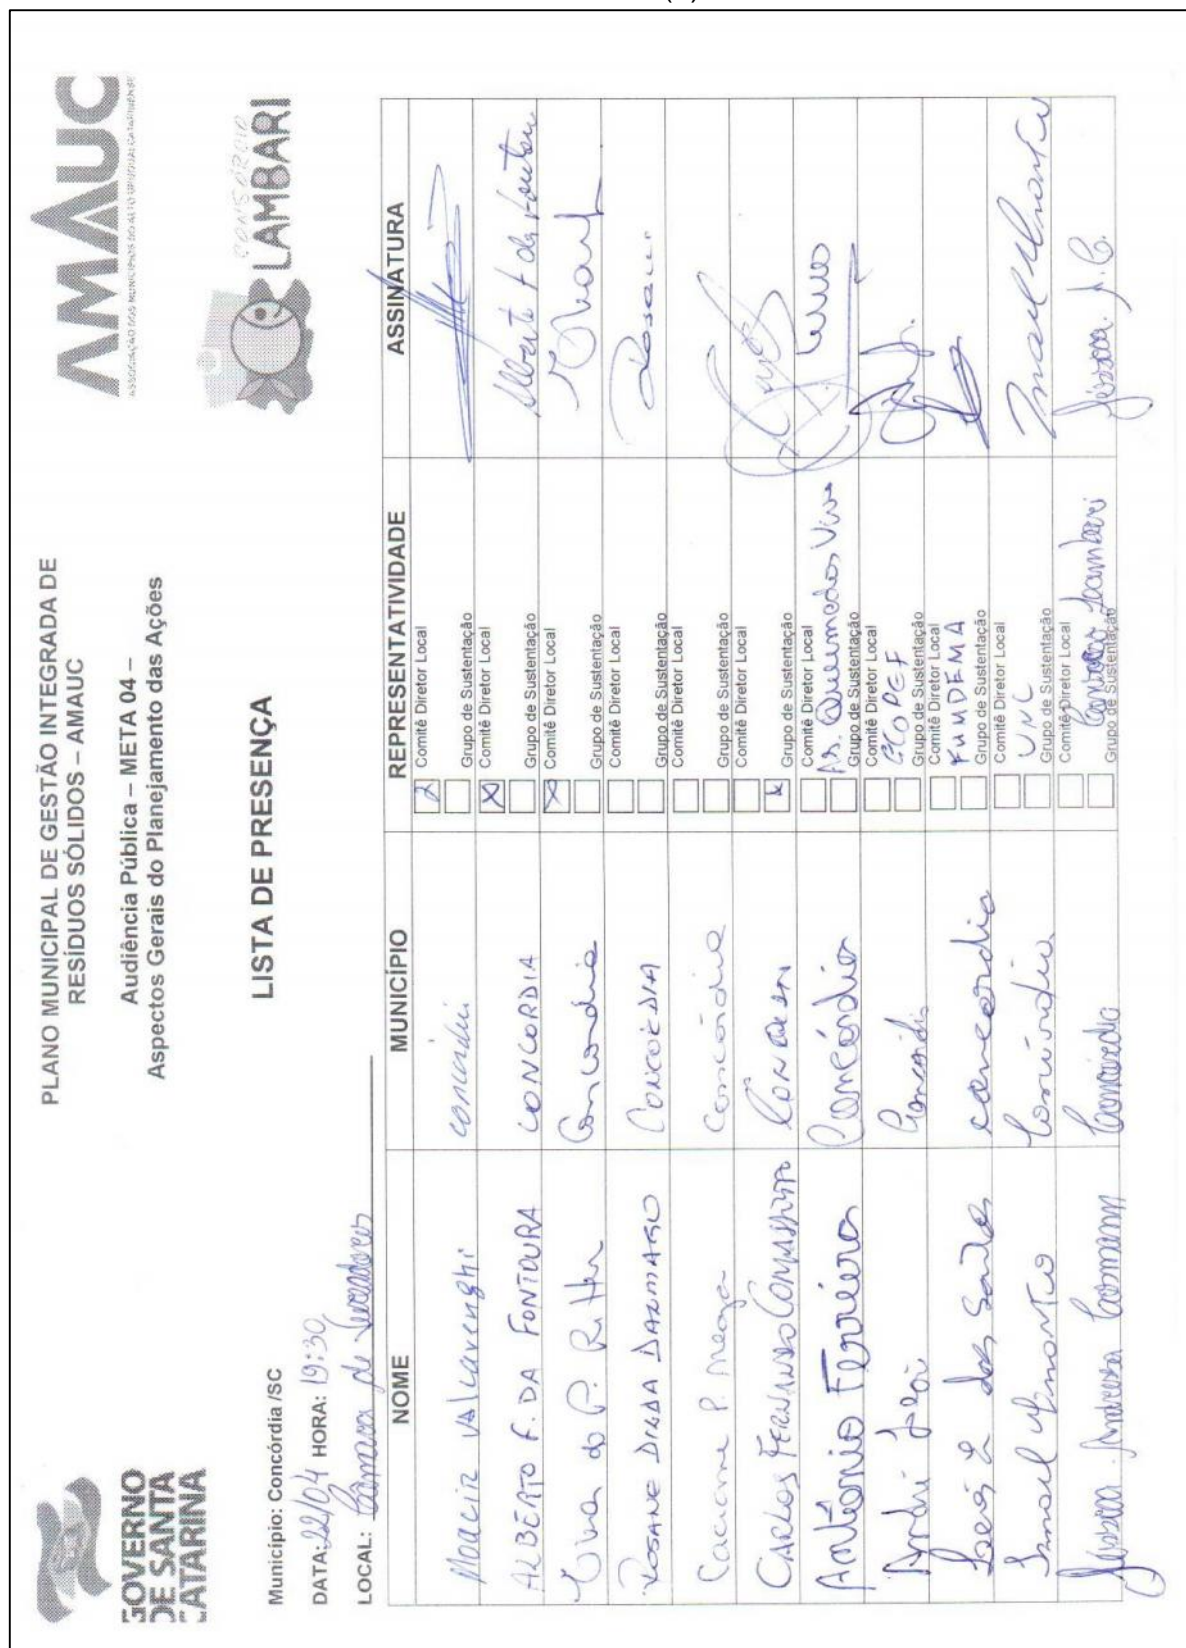 GOVERNO
DE SANTA
CATARINA
PLANO MUNICIPAL DE GESTÃO INTEGRADA DE
RESÍDUOS SÓLIDOS – AMAUC
Audiência Pública – META 04 –
Aspectos Gerais do Planejamento das Ações
AMAUC
ASSOCIAÇÃO DOS MUNICÍPIOS DO ALTO URUGUAI CATARINENSE
CONSÓRCIO
LAMBARI
LISTA DE PRESENÇA
Município: Concórdia /SC
DATA: 22/04 HORA: 19:30
LOCAL: Camara de Vereadores
NOME MUNICÍPIO REPRESENTATIVIDADE ASSINATURA
Moacir Valcarenghi concordia Comitê Diretor Local
Grupo de Sustentação
ALBERTO F. DA FONTOURA CONCORDIA Comitê Diretor Local Alberto F da Fontoura
Grupo de Sustentação
do P. Ritter Concordia Comitê Diretor Local
Grupo de Sustentação
ROSANE DALMAGO CONCORDIA Comitê Diretor Local Rosane
Grupo de Sustentação
P. Concórdia Comitê Diretor Local
Grupo de Sustentação
CARLOS FERNANDO Comitê Diretor Local
Grupo de Sustentação
Antônio Ferreira Concórdia Comitê Diretor Local
As. Queimados Vivo
Grupo de Sustentação
André Comitê Diretor Local
Grupo de Sustentação
dos Santos concordia Comitê Diretor Local
FUNDEMA
Grupo de Sustentação
Concórdia Comitê Diretor Local
UNC
Grupo de Sustentação
Jéssica Andressa Concórdia Comitê Diretor Local Jéssica A. C.
Lambari
Grupo de Sustentação